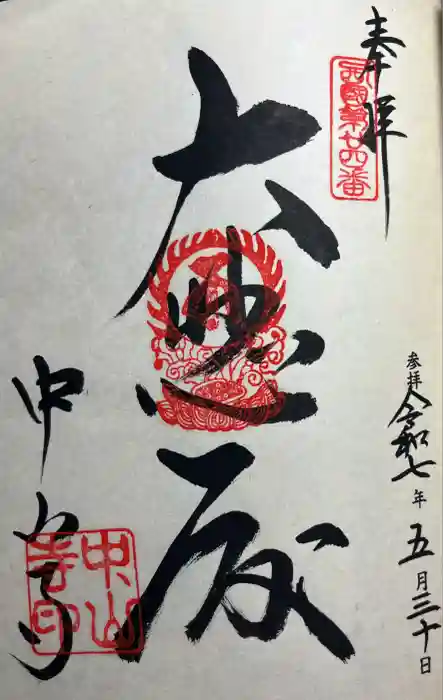 奉拝
西國第廿四番
参拝 令和七年五月三十日
大悲殿
中山寺
中山寺印